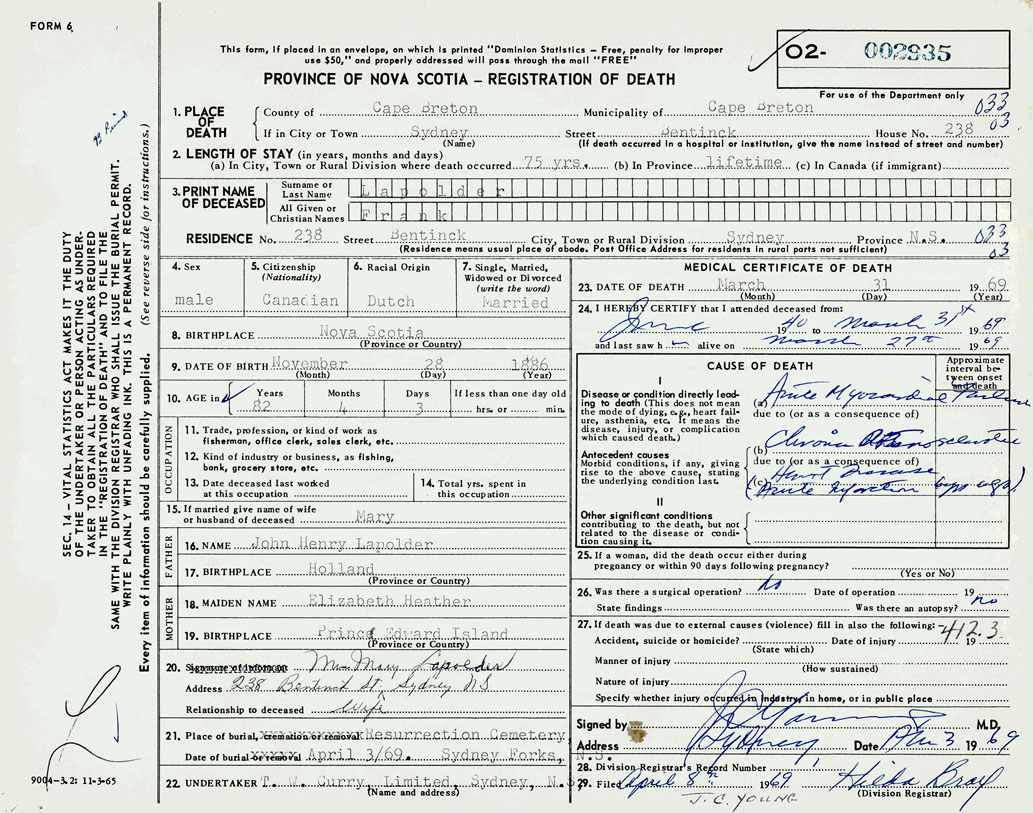 FORM 6
This form, if placed in an envelope, on which is printed "Dominion Statistics – Free, penalty for improper
use $50," and properly addressed will pass through the mail "FREE"
PROVINCE OF NOVA SCOTIA – REGISTRATION OF DEATH
O2- 002935
For use of the Department only
SEC. 14 – VITAL STATISTICS ACT MAKES IT THE DUTY
OF THE UNDERTAKER OR PERSON ACTING AS UNDER-
TAKER TO OBTAIN ALL THE PARTICULARS REQUIRED
IN THE "REGISTRATION OF DEATH" AND TO FILE THE
SAME WITH THE DIVISION REGISTRAR WHO SHALL ISSUE THE BURIAL PERMIT.
WRITE PLAINLY WITH UNFADING INK. THIS IS A PERMANENT RECORD.
Every item of information should be carefully supplied. (See reverse side for instructions.)
1. PLACE OF DEATH
County of Cape Breton Municipality of Cape Breton 033
If in City or Town Sydney Street Bentinck House No. 238 03
(Name) (If death occurred in a hospital or institution, give the name instead of street and number)
2. LENGTH OF STAY (in years, months and days)
(a) In City, Town or Rural Division where death occurred 75 yrs. (b) In Province lifetime (c) In Canada (if immigrant)
3. PRINT NAME OF DECEASED
Surname or Last Name Lapolder
All Given or Christian Names Frank
RESIDENCE No. 238 Street Bentinck City, Town or Rural Division Sydney Province N.S. 033
(Residence means usual place of abode. Post Office Address for residents in rural parts not sufficient) 03
4. Sex
male
5. Citizenship
(Nationality)
Canadian
6. Racial Origin
Dutch
7. Single, Married,
Widowed or Divorced
(write the word)
Married
8. BIRTHPLACE Nova Scotia
(Province or Country)
9. DATE OF BIRTH November 28 1886
(Month) (Day) (Year)
10. AGE in Years Months Days If less than one day old
82 4 3 hrs. or min.
OCCUPATION
11. Trade, profession, or kind of work as
fisherman, office clerk, sales clerk, etc.
12. Kind of industry or business, as fishing,
bank, grocery store, etc.
13. Date deceased last worked
at this occupation
14. Total yrs. spent in
this occupation
15. If married give name of wife
or husband of deceased Mary
FATHER
16. NAME John Henry Lapolder
17. BIRTHPLACE Holland
(Province or Country)
MOTHER
18. MAIDEN NAME Elizabeth Heather
19. BIRTHPLACE Prince Edward Island
(Province or Country)
20. Signature of informant Mrs Mary Lapolder
Address 238 Bentinck St, Sydney NS
Relationship to deceased Wife
21. Place of burial, cremation or removal Resurrection Cemetery
Date of burial or removal April 3/69. Sydney Forks, N.S.
22. UNDERTAKER T. W. Curry, Limited, Sydney, N.S.
(Name and address)
9004-3.2: 11-3-65
MEDICAL CERTIFICATE OF DEATH
23. DATE OF DEATH March 31 1969
(Month) (Day) (Year)
24. I HEREBY CERTIFY that I attended deceased from:
June 1940 to March 31st 1969
and last saw h im alive on March 27th 1969
CAUSE OF DEATH
Approximate
interval be-
tween onset
and death
I
Disease or condition directly lead-
ing to death (This does not mean
the mode of dying, e.g., heart fail-
ure, asthenia, etc. It means the
disease, injury, or complication
which caused death.)
(a) Acute Myocardial Failure
due to (or as a consequence of)
Antecedent causes
Morbid conditions, if any, giving
rise to the above cause, stating
the underlying condition last.
(b) Chronic Arteriosclerotic
due to (or as a consequence of)
(c) Heart Disease
(Acute Infarction 6 yrs ago)
II
Other significant conditions
contributing to the death, but not
related to the disease or condi-
tion causing it.
25. If a woman, did the death occur either during
pregnancy or within 90 days following pregnancy?
(Yes or No)
26. Was there a surgical operation? No Date of operation 19
State findings Was there an autopsy? no
27. If death was due to external causes (violence) fill in also the following: 412.3
Accident, suicide or homicide? Date of injury 19
(State which)
Manner of injury
(How sustained)
Nature of injury
Specify whether injury occurred in industry, in home, or in public place
Signed by J C Young M.D.
Address Sydney Date Apr 3 1969
28. Division Registrar's Record Number
29. Filed April 8th 1969. Hilda Bray
(Division Registrar)
J. C. YOUNG